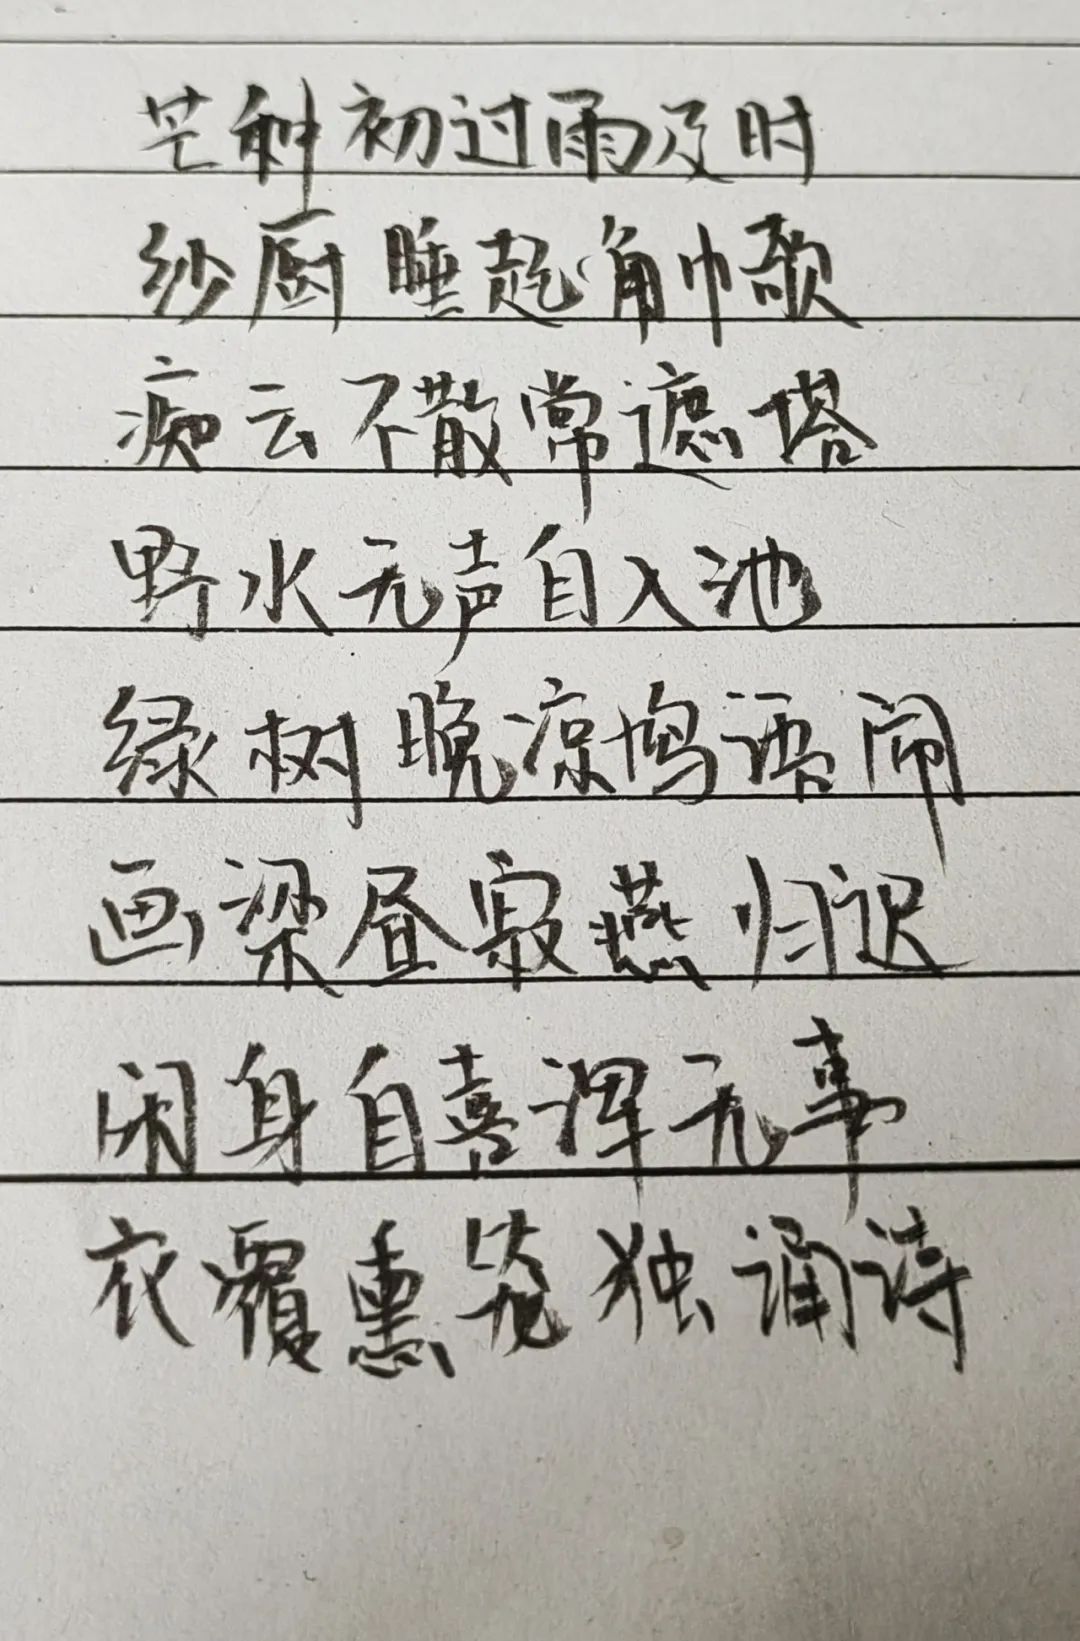 芒种初过雨及时
纱厨睡起角巾欹
痴云不散常遮塔
野水无声自入池
绿树晚凉鸠语闹
画梁昼寂燕归迟
闲身自喜浑无事
衣覆熏笼独诵诗